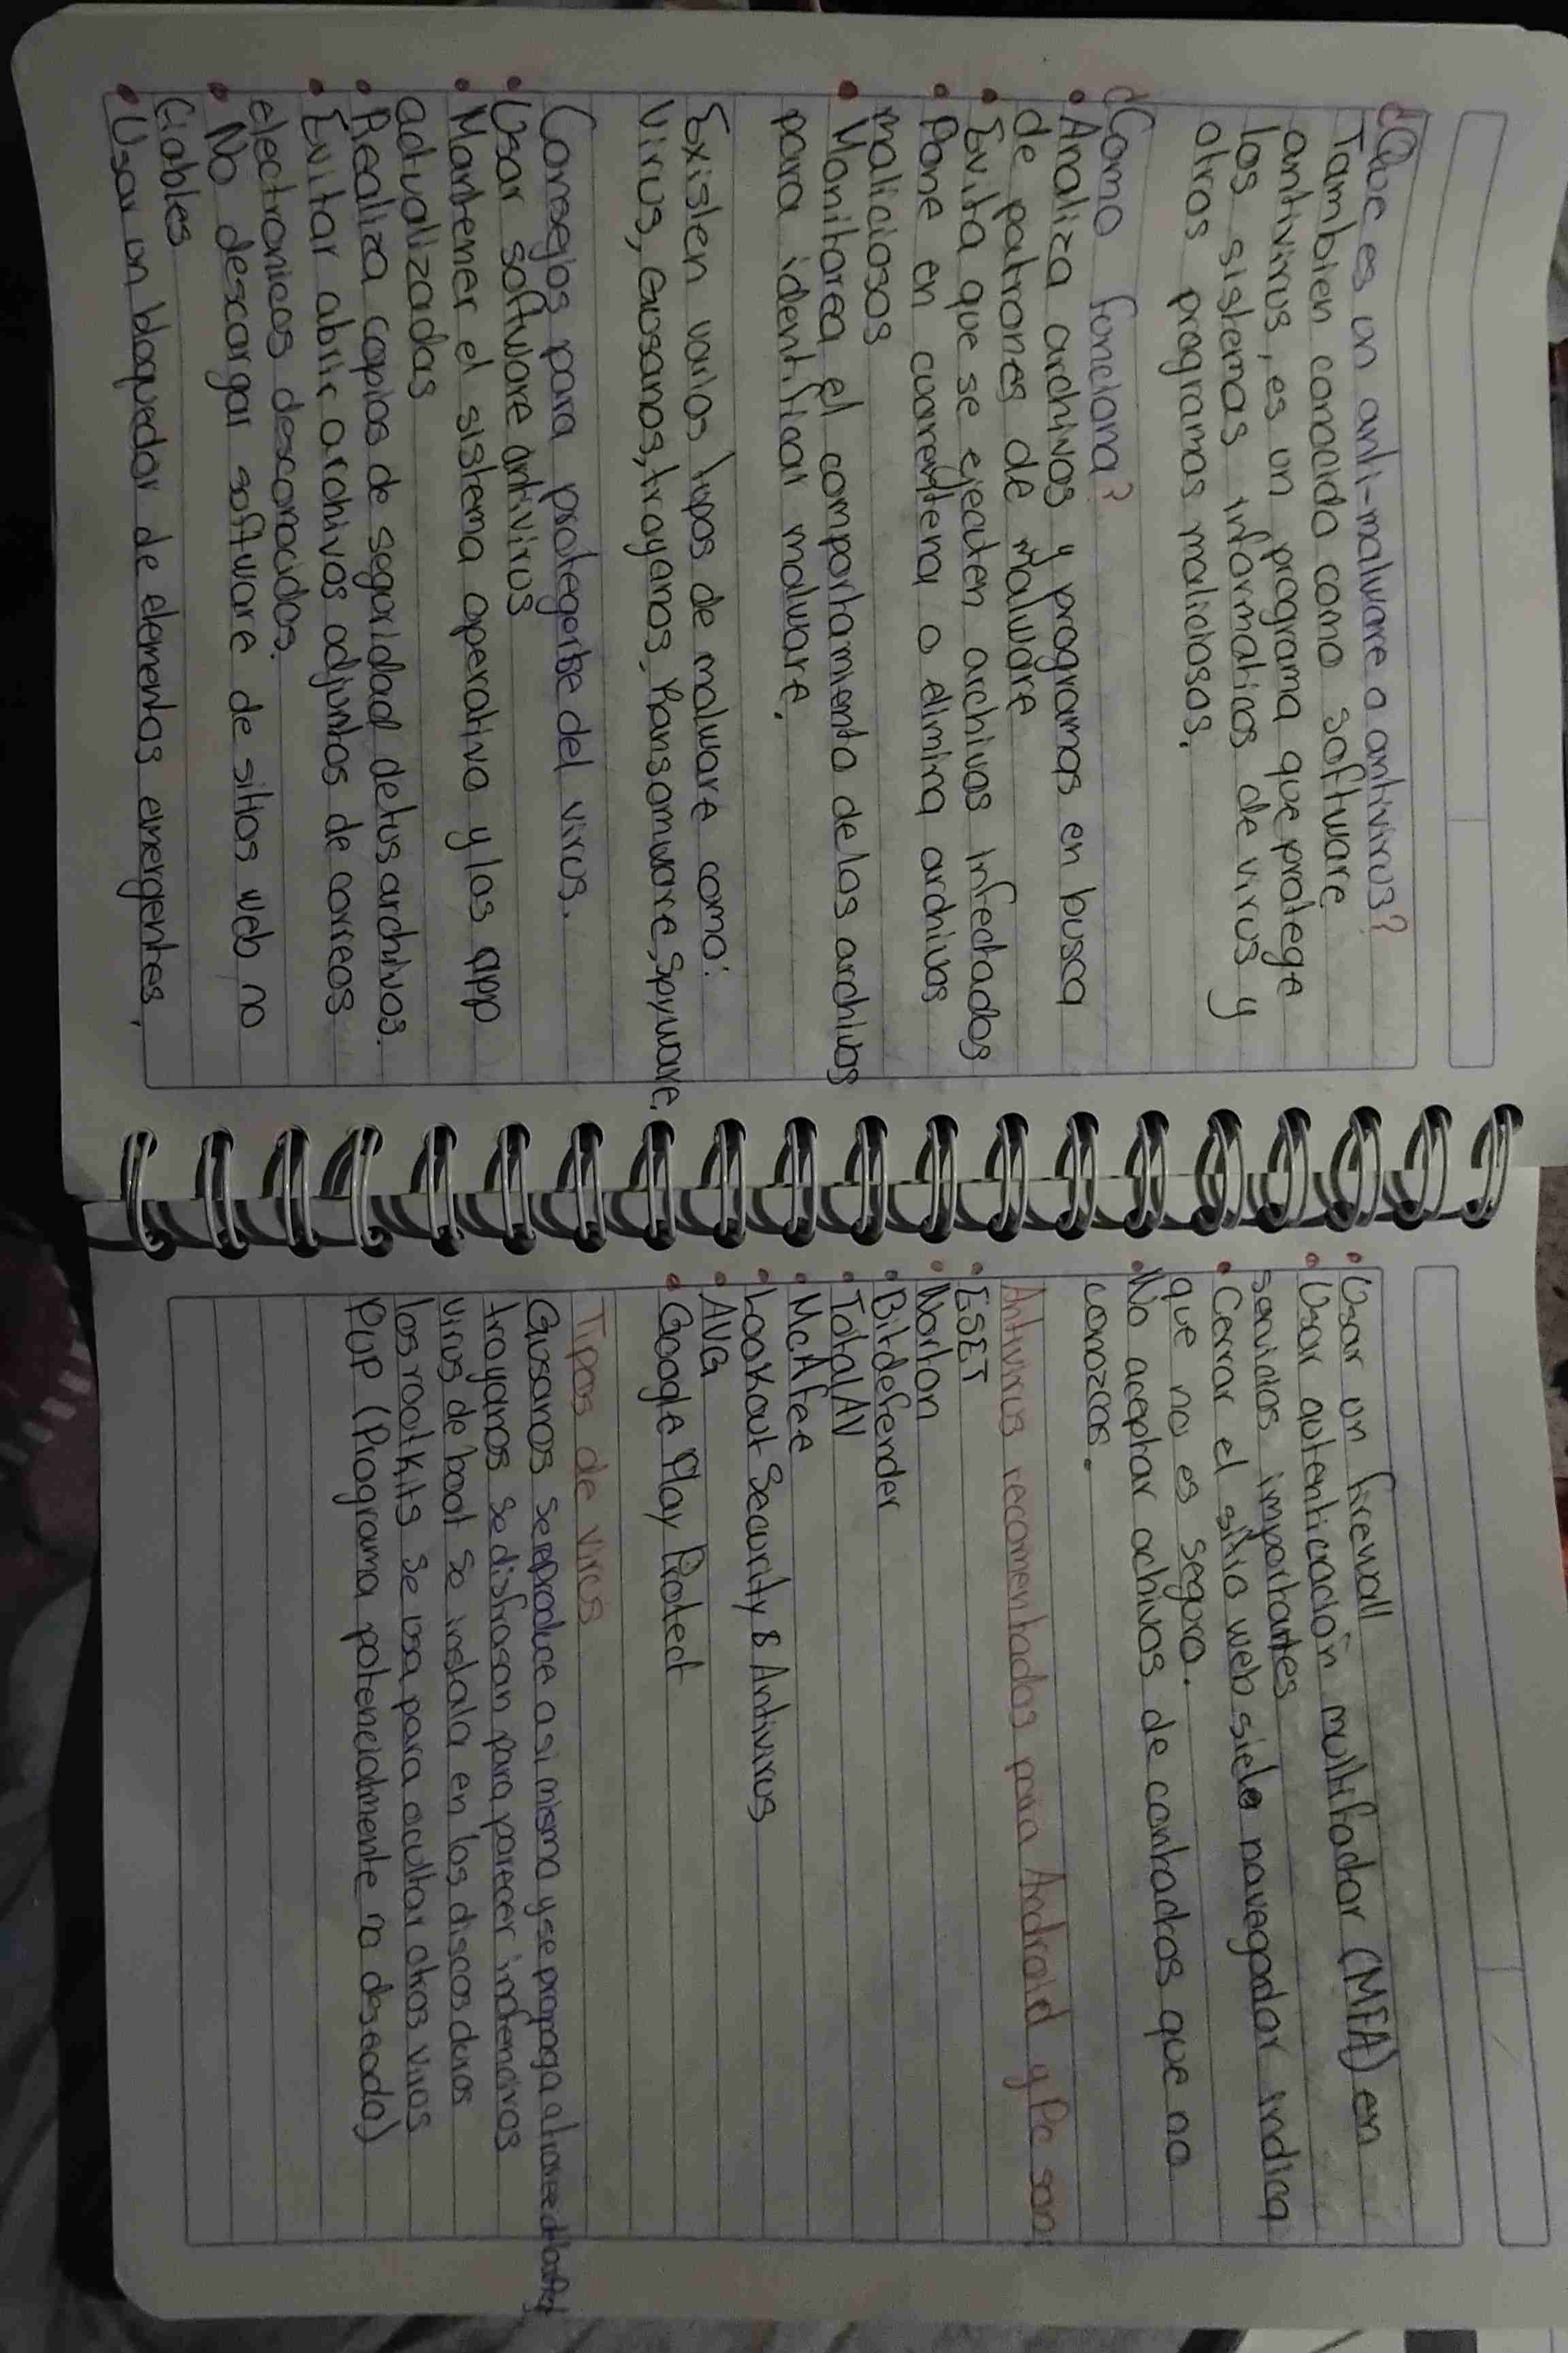 ¿Que es un anti-malware o antivirus?
Tambien conocido como software
antivirus, es un programa que protege
los sistemas informaticos de virus y
otros programas maliciosos.
¿Como funciona?
• Analiza archivos y programas en busca
de patrones de malware
• Evita que se ejecuten archivos infectados
• Pone en cuarentena o elimina archivos
maliciosos
• Monitorea el comportamiento de los archivos
para identificar malware.
Existen varios tipos de malware como:
Virus, Gusanos, troyanos, Ransomware, Spyware.
Consejos para protegerte del virus.
• Usar software antivirus
• Mantener el sistema operativo y las app
actualizadas
• Realiza copias de seguridad de tus archivos.
• Evitar abrir archivos adjuntos de correos
electronicos desconocidos.
• No descargar software de sitios web no
fiables
• Usar un bloqueador de elementos emergentes.
• Usar un firewall
• Usar autenticación multifactor (MFA) en
servicios importantes
• Cerrar el sitio web si el navegador indica
que no es seguro.
• No aceptar achivos de contactos que no
conozcas.
Antivirus recomentados para Android y Pc son:
• ESET
• Norton
• Bitdefender
• Total AV
• McAfee
• Lookout Security & Antivirus
• AVG
• Google Play Protect
Tipos de virus
Gusanos se reproduce a si mismo y se propaga
troyanos se disfrasan para parecer inofencivos
virus de boot se instala en los discos duros
los rootkits se usa para ocultar otros virus
PUP (Programa potencialmente no deseado)